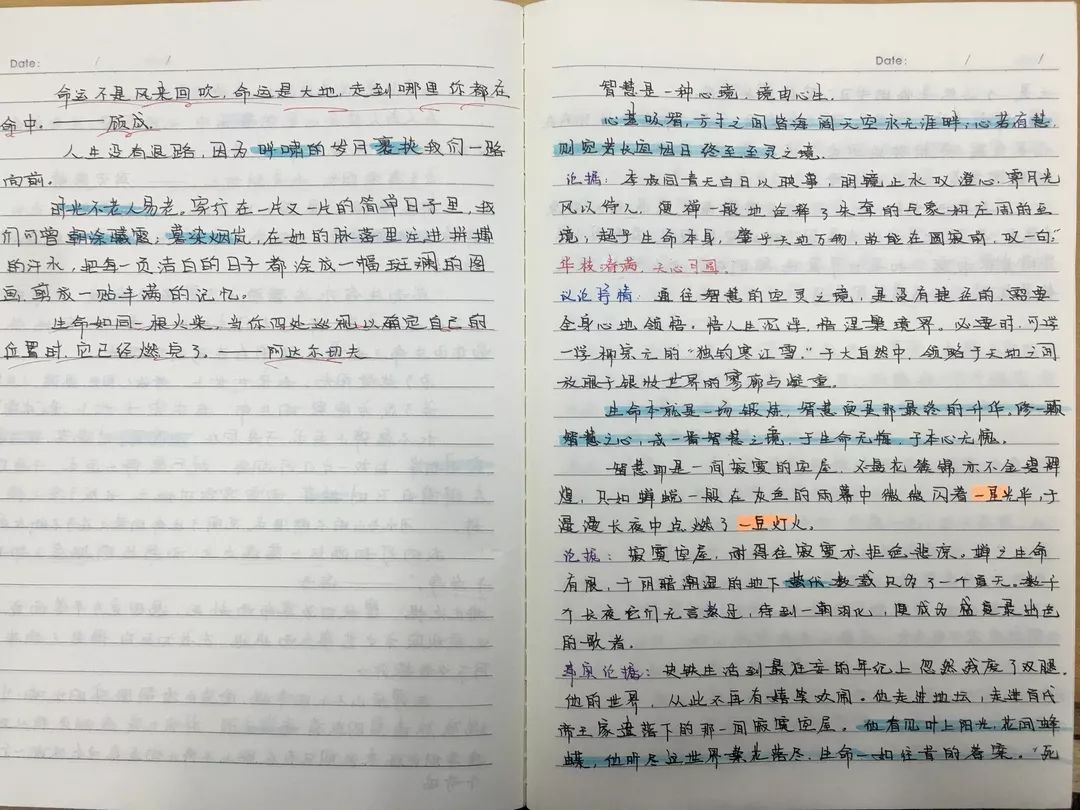 Date: / /
命运不是风来回吹，命运是大地，走到哪里你都在
命中。——顾城
人生没有退路，因为呼啸的岁月裹挟我们一路
向前。
时光不老人易老。穿行在一片又一片的简单日子里，我
们何曾朝涂曦霞，暮染烟岚，在她的脉落里注进拼搏
的汗水，把每一页洁白的日子都涂成一幅斑斓的图
画，剪成一贴丰满的记忆。
生命如同一根火柴，当你四处巡视以确定自己的
位置时，它已经燃完了。——阿达尔切夫
Date: / /
智慧是一种心境，境由心生。
心基明智，方寸之间皆海阔天空永无涯畔，心若有慧，
则空若长烟一日终至至灵之境。
论据：李叔同青天白日以映事，明镜止水以澄心，霁月光
风以待人，便禅一般地诠释了朵奎的气象和庄周的至
境，超乎生命本身，肇乎天地万物，故能在圆寂前，叹一句：“
华枝春满，天心月圆。
议论抒情：通往智慧的空灵之境，是没有捷径的，需要
全身心地领悟，悟人生沉浮，悟涅槃境界。必要时，可学
一学柳宗元的“独钓寒江雪”于大自然中，领略于天地之间
放眼于银妆世界的寥廓与凝重。
生命本就是一场锻炼，智慧更是那最终的升华，修一颗
智慧之心，成一番智慧之境，于生命无悔，于本心无愧。
智慧即是一间寂寞的空屋，不是花簇锦亦不金碧辉
煌，只如蝉蜕一般在灰色的雨幕中微微闪着一豆光华，于
漫漫长夜中点燃了一豆灯火。
论据：寂寞空屋，耐得住寂寞亦拒绝悲凉。蝉之生命
有限，于阴暗潮湿的地下蛰伏数载只为了一个夏天。数千
个长夜它们无言熬过，待到一朝羽化，便成为盛夏最出色
的歌者。
事实论据：史铁生活到最狂妄的年纪上忽然残废了双腿，
他的世界，从此不再有嬉笑欢闹。他走进地坛，走进百代
帝王家遗落下的那一间寂寞空屋。他看见叶上阳光，花间蜂
蝶，他听尽这世界繁花落尽，生命一如往昔的答案。“死